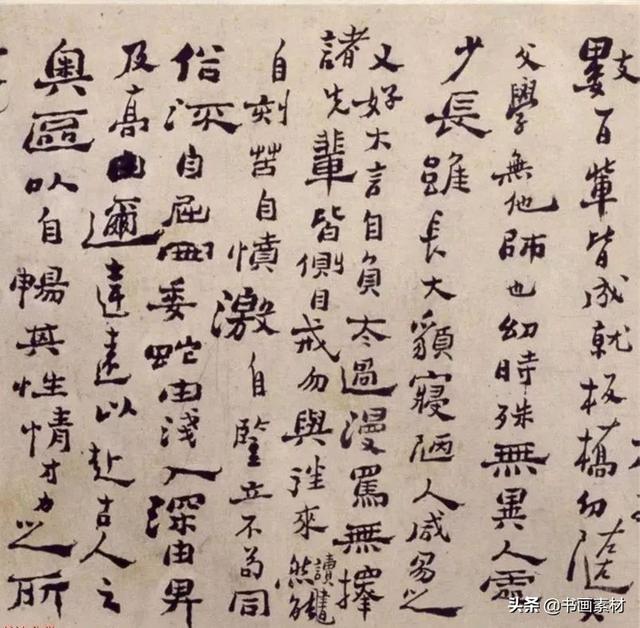 數百輩皆成就板橋幼隨其
父學無他師也幼時殊無異人處
少長雖長大貌寢陋人咸易之
又好大言自負太過漫罵無擇
諸先輩皆側目戒勿與往來然讀書能
自刻苦自憤激自豎立不苟同
俗深自屈曲委蛇由淺入深由卑
及高由邇達遠以赴古人之
奧區以自暢其性情才力之所
头条 @书画素材